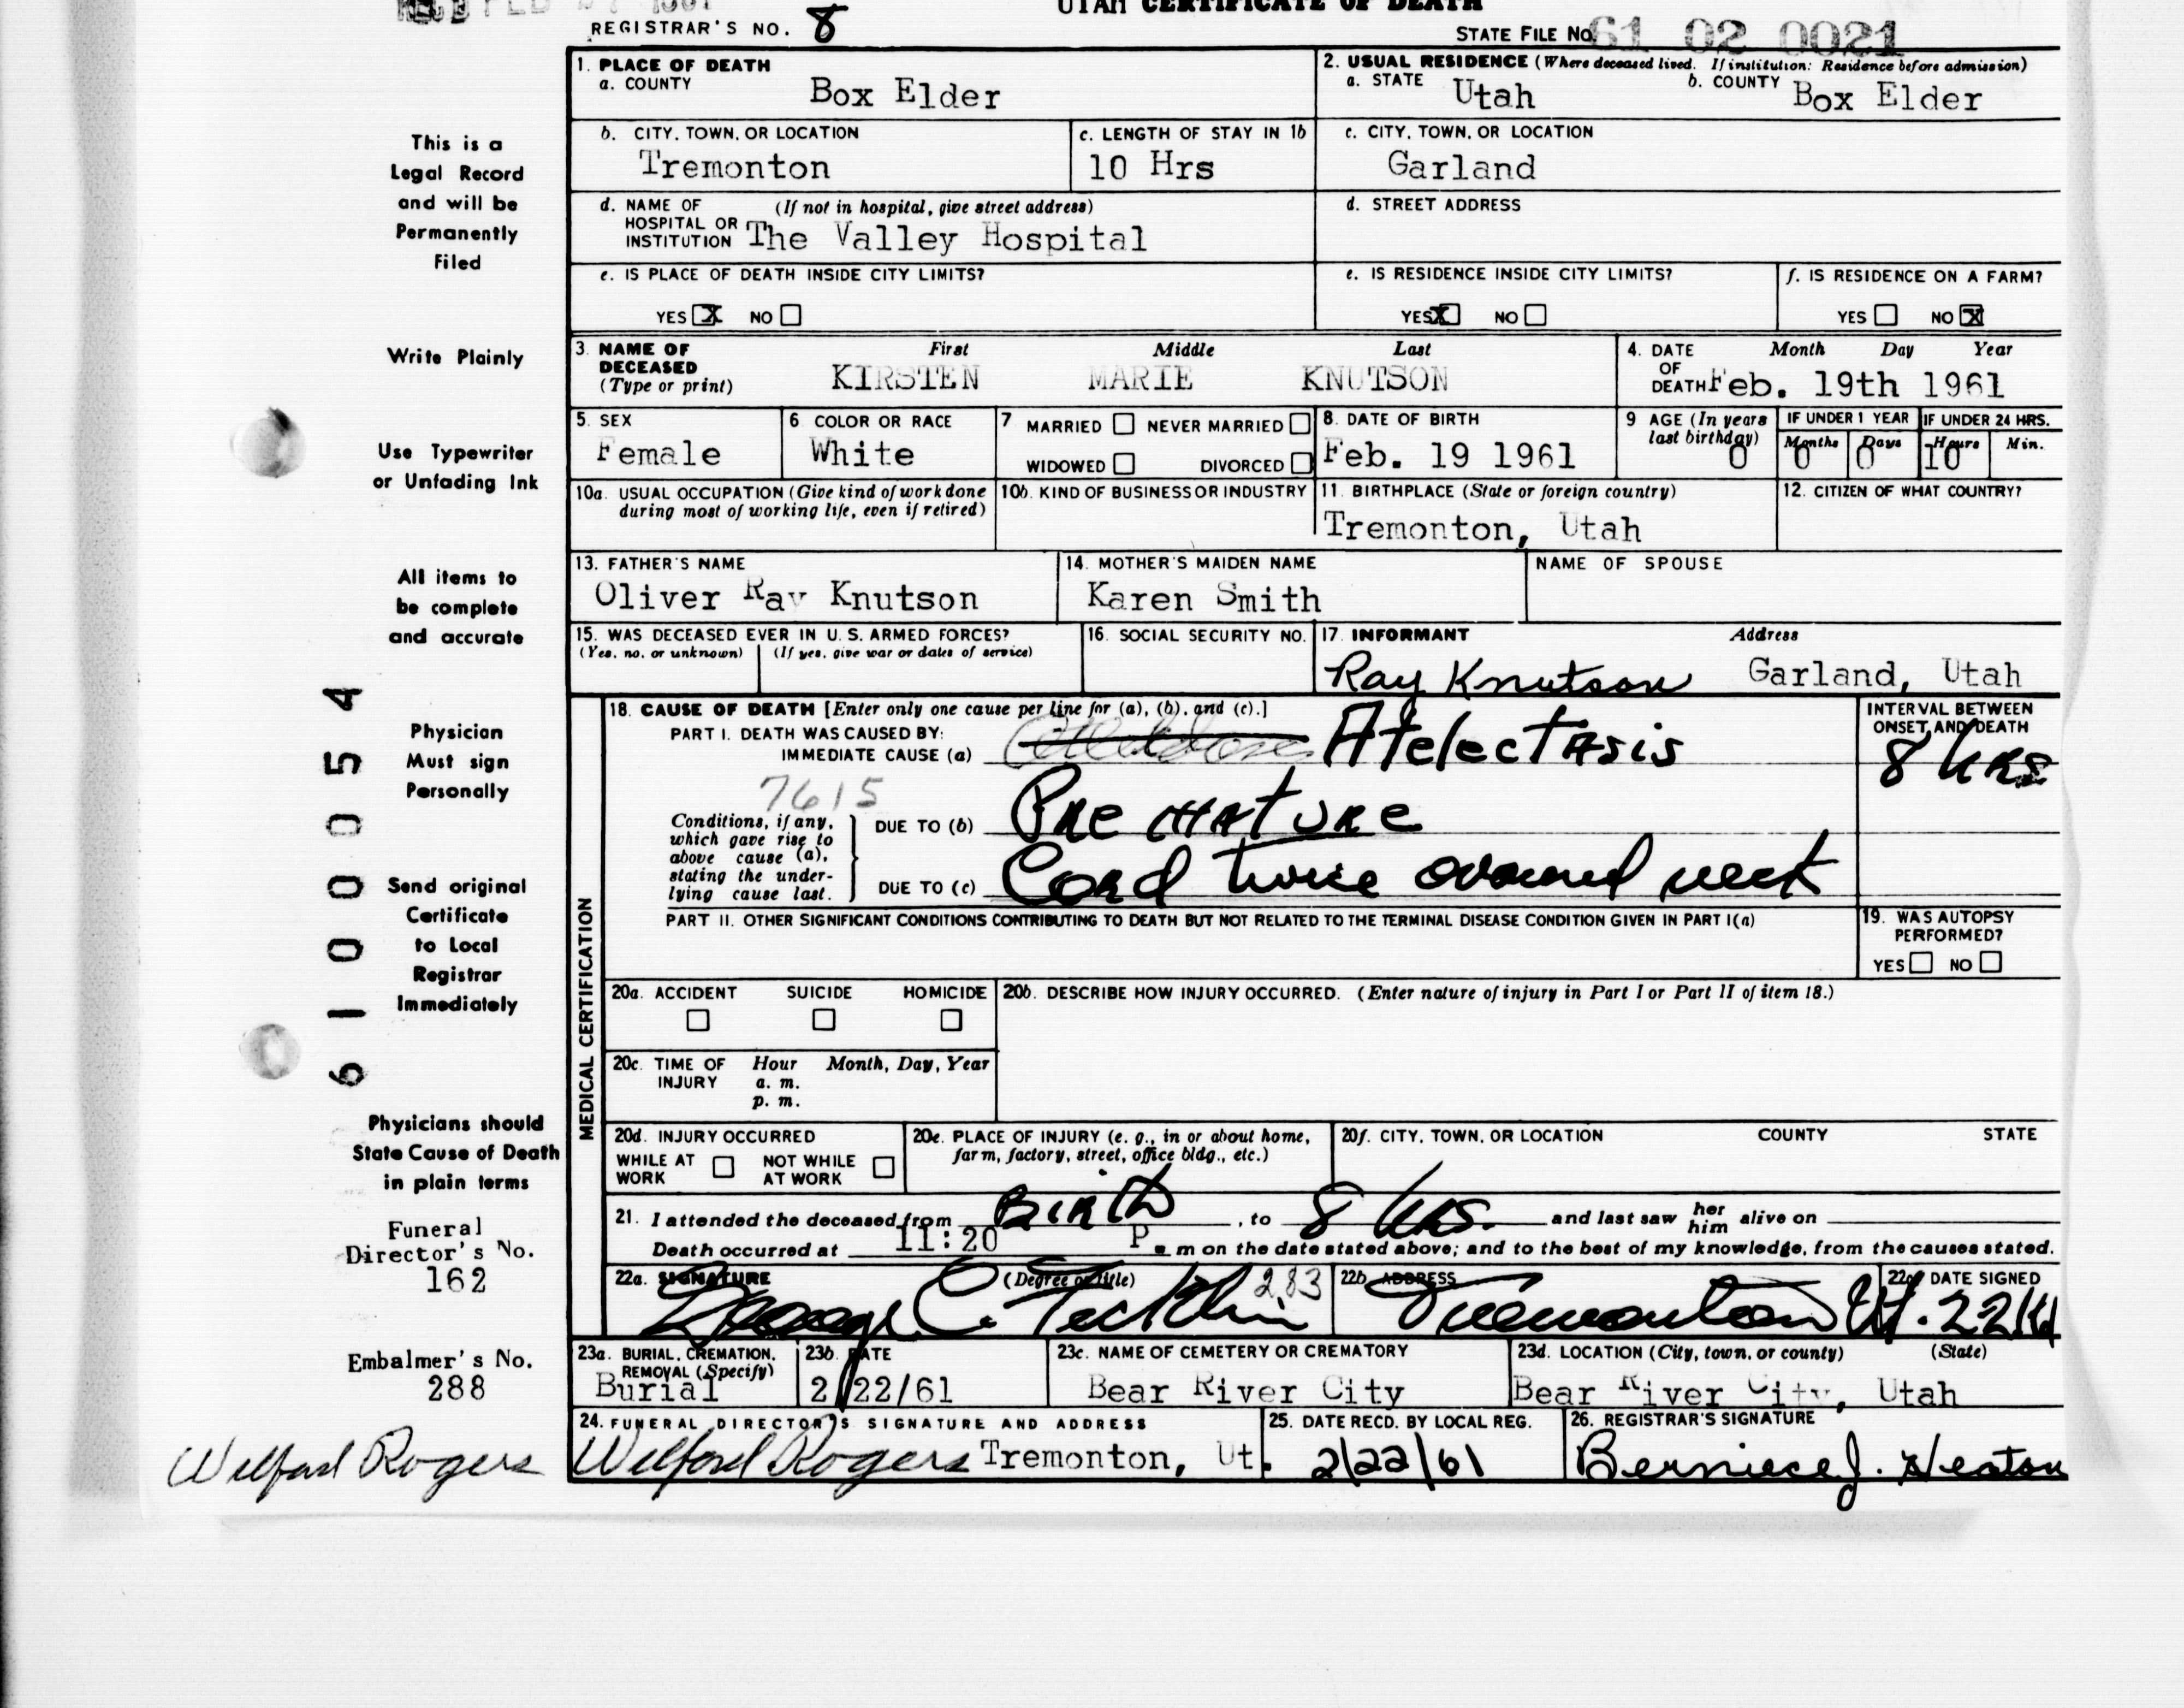 UTAH CERTIFICATE OF DEATH
REGISTRAR'S NO. 8
STATE FILE No. 61 02 0021
1. PLACE OF DEATH
a. COUNTY Box Elder
2. USUAL RESIDENCE (Where deceased lived. If institution: Residence before admission)
a. STATE Utah b. COUNTY Box Elder
b. CITY, TOWN, OR LOCATION Tremonton
c. LENGTH OF STAY IN 1b 10 Hrs
c. CITY, TOWN, OR LOCATION Garland
d. NAME OF HOSPITAL OR INSTITUTION (If not in hospital, give street address) The Valley Hospital
d. STREET ADDRESS
e. IS PLACE OF DEATH INSIDE CITY LIMITS? YES X NO
e. IS RESIDENCE INSIDE CITY LIMITS? YES X NO
f. IS RESIDENCE ON A FARM? YES NO X
3. NAME OF DECEASED (Type or print) First Middle Last
KIRSTEN MARIE KNUTSON
4. DATE OF DEATH Month Day Year
Feb. 19th 1961
5. SEX Female
6 COLOR OR RACE White
7 MARRIED NEVER MARRIED
WIDOWED DIVORCED
8. DATE OF BIRTH Feb. 19 1961
9 AGE (In years last birthday) 0
IF UNDER 1 YEAR Months 0 Days 0
IF UNDER 24 HRS. Hours 10 Min.
10a. USUAL OCCUPATION (Give kind of work done during most of working life, even if retired)
10b. KIND OF BUSINESS OR INDUSTRY
11. BIRTHPLACE (State or foreign country) Tremonton, Utah
12. CITIZEN OF WHAT COUNTRY?
13. FATHER'S NAME Oliver Ray Knutson
14. MOTHER'S MAIDEN NAME Karen Smith
NAME OF SPOUSE
15. WAS DECEASED EVER IN U. S. ARMED FORCES?
(Yes, no, or unknown) (If yes, give war or dates of service)
16. SOCIAL SECURITY NO.
17. INFORMANT Address
Ray Knutson Garland, Utah
MEDICAL CERTIFICATION
18. CAUSE OF DEATH [Enter only one cause per line for (a), (b), and (c).]
PART I. DEATH WAS CAUSED BY:
IMMEDIATE CAUSE (a) Atelectasis
INTERVAL BETWEEN ONSET AND DEATH
8 hrs
7615
Conditions, if any, which gave rise to above cause (a), stating the underlying cause last.
DUE TO (b) Premature
DUE TO (c) Cord twice around neck
PART II. OTHER SIGNIFICANT CONDITIONS CONTRIBUTING TO DEATH BUT NOT RELATED TO THE TERMINAL DISEASE CONDITION GIVEN IN PART I(a)
19. WAS AUTOPSY PERFORMED?
YES NO
20a. ACCIDENT SUICIDE HOMICIDE
20b. DESCRIBE HOW INJURY OCCURRED. (Enter nature of injury in Part I or Part II of item 18.)
20c. TIME OF INJURY Hour a. m. p. m. Month, Day, Year
20d. INJURY OCCURRED
WHILE AT WORK NOT WHILE AT WORK
20e. PLACE OF INJURY (e. g., in or about home, farm, factory, street, office bldg., etc.)
20f. CITY, TOWN, OR LOCATION COUNTY STATE
21. I attended the deceased from Birth, to 8 hrs. and last saw her him alive on
Death occurred at 11:20 P. m on the date stated above; and to the best of my knowledge, from the causes stated.
22a. SIGNATURE (Degree or title) 283
George C.
22b ADDRESS Tremonton Ut.
22c DATE SIGNED
23a. BURIAL, CREMATION, REMOVAL (Specify) Burial
23b. DATE 2/22/61
23c. NAME OF CEMETERY OR CREMATORY Bear River City
23d. LOCATION (City, town, or county) (State)
Bear River City, Utah
24. FUNERAL DIRECTOR'S SIGNATURE AND ADDRESS
Wilford Rogers Tremonton, Ut.
25. DATE RECD. BY LOCAL REG. 2/22/61
26. REGISTRAR'S SIGNATURE
Berniece J. Heaton
This is a
Legal Record
and will be
Permanently
Filed
Write Plainly
Use Typewriter
or Unfading Ink
All items to
be complete
and accurate
Physician
Must sign
Personally
Send original
Certificate
to Local
Registrar
Immediately
Physicians should
State Cause of Death
in plain terms
Funeral
Director's No.
162
Embalmer's No.
288
Wilford Rogers
61 00054